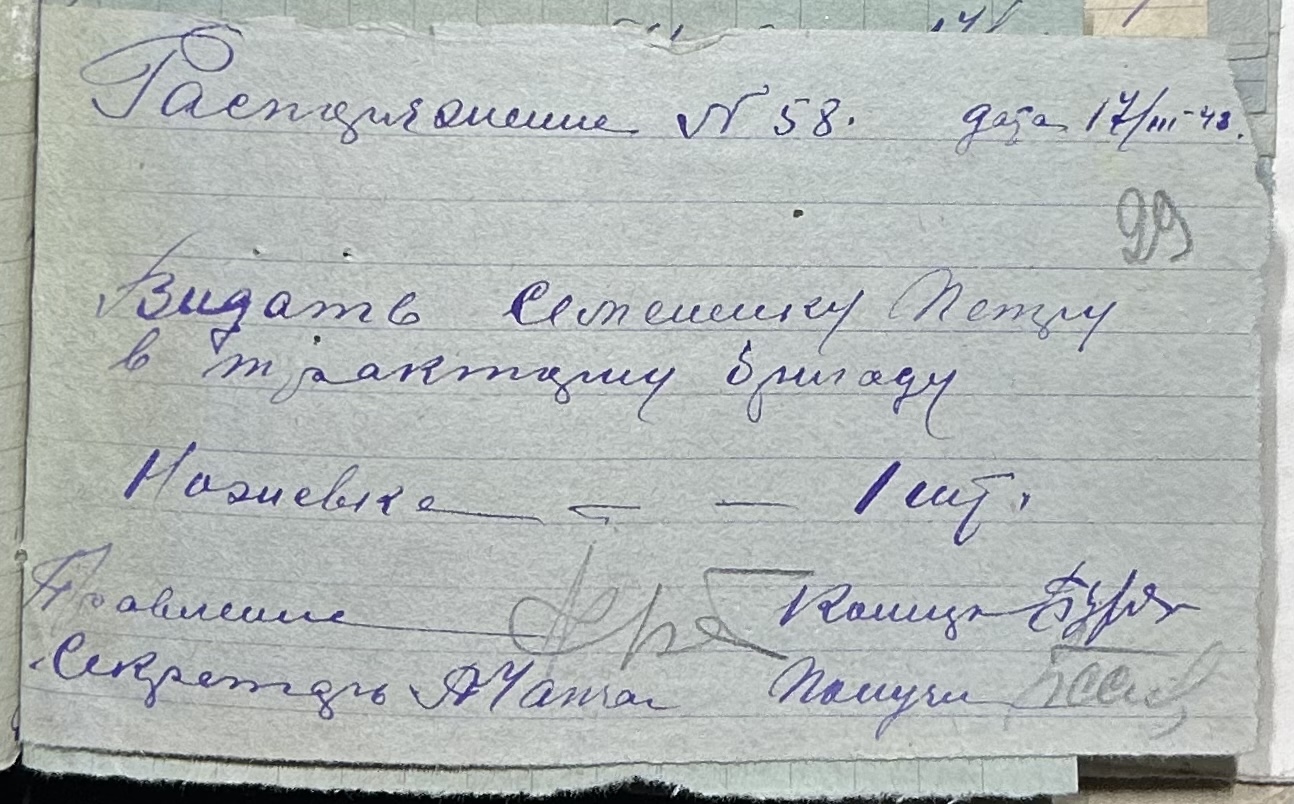 Распоряжение N 58. дата 17/III-43.
99
Видать Семенику Петру
в тракторну бригаду
Ножевке — — 1 шт.
Правление
Секретарь Получи